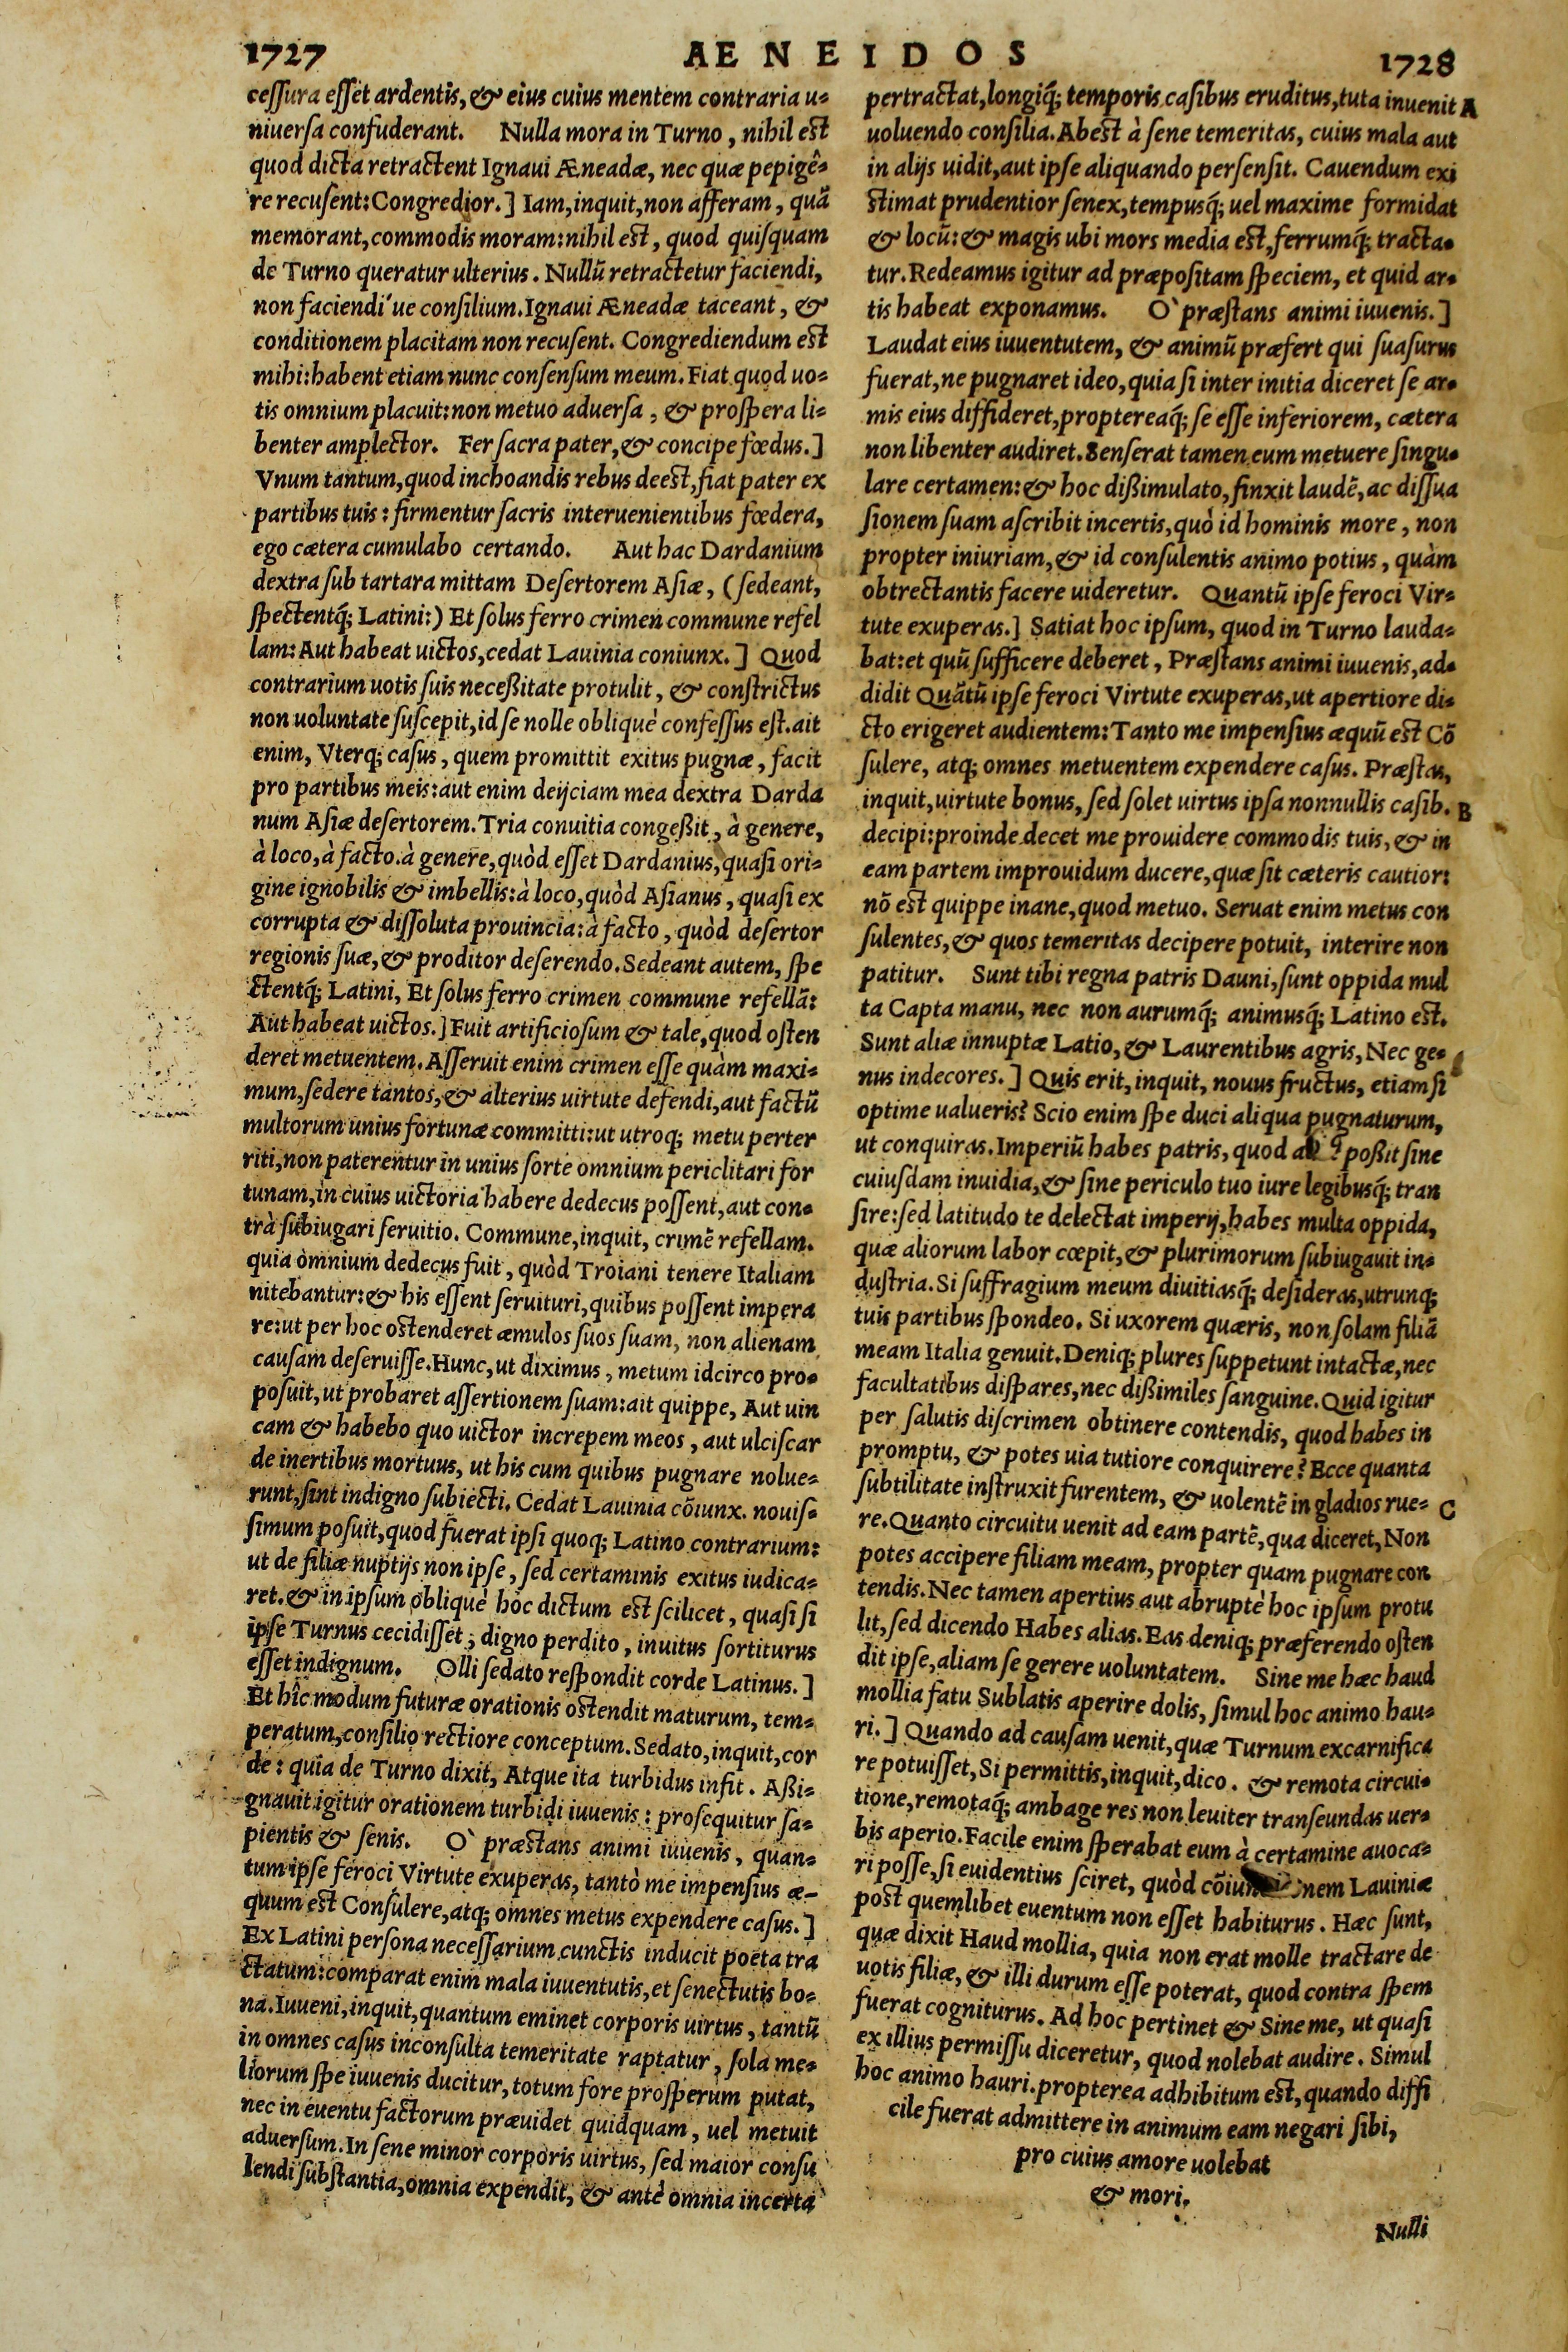 1727 AENEIDOS 1728
cessura esset ardentis, & eius cuius mentem contraria u=
niuersa confuderant. Nulla mora in Turno, nihil est
quod dicta retractent Ignaui Æneadæ, nec quæ pepigê=
re recusent: Congredior.] Iam, inquit, non afferam, quā
memorant, commodis moram: nihil est, quod quisquam
de Turno queratur ulterius. Nullū retractetur faciendi,
non faciendi'ue consilium. Ignaui Æneadæ taceant, &
conditionem placitam non recusent. Congrediendum est
mihi: habent etiam nunc consensum meum. Fiat quod uo=
tis omnium placuit: non metuo aduersa, & prospera li=
benter amplector. Fer sacra pater, & concipe fœdus.]
Vnum tantum, quod inchoandis rebus deest, fiat pater ex
partibus tuis: firmentur sacris interuenientibus fœdera,
ego cætera cumulabo certando. Aut hac Dardanium
dextra sub tartara mittam Desertorem Asiæ, (sedeant,
spectentq́; Latini:) Et solus ferro crimen commune refel
lam: Aut habeat uictos, cedat Lauinia coniunx.] Quod
contrarium uotis suis necessitate protulit, & constrictus
non uoluntate suscepit, id se nolle obliquè confessus est. ait
enim, Vterq; casus, quem promittit exitus pugnæ, facit
pro partibus meis: aut enim deijciam mea dextra Darda
num Asiæ desertorem. Tria conuitia congessit, à genere,
à loco, à facto. à genere, quòd esset Dardanius, quasi ori=
gine ignobilis & imbellis: à loco, quòd Asianus, quasi ex
corrupta & dissoluta prouincia: à facto, quòd desertor
regionis suæ, & proditor deserendo. Sedeant autem, spe
ctentq́; Latini, Et solus ferro crimen commune refellā:
Aut habeat uictos.] Fuit artificiosum & tale, quod osten
deret metuentem. Asseruit enim crimen esse quàm maxi=
mum, sedere tantos, & alterius uirtute defendi, aut factū
multorum unius fortunæ committi: ut utroq; metu perter
riti, non paterentur in unius sorte omnium periclitari for
tunam, in cuius uictoria habere dedecus possent, aut con=
trà subiugari seruitio. Commune, inquit, crimē refellam.
quia omnium dedecus fuit, quòd Troiani tenere Italiam
nitebantur: & his essent seruituri, quibus possent impera
re: ut per hoc ostenderet æmulos suos suam, non alienam
causam deseruisse. Hunc, ut diximus, metum idcirco pro=
posuit, ut probaret assertionem suam: ait quippe, Aut uin
cam & habebo quo uictor increpem meos, aut ulciscar
de inertibus mortuus, ut his cum quibus pugnare nolue=
runt, sint indigno subiecti. Cedat Lauinia cōiunx. nouis=
simum posuit, quod fuerat ipsi quoq; Latino contrarium:
ut de filiæ nuptijs non ipse, sed certaminis exitus iudica=
ret. & in ipsum obliquè hoc dictum est scilicet, quasi si
ipse Turnus cecidisset, digno perdito, inuitus sortiturus
esset indignum. Olli sedato respondit corde Latinus.]
Et hîc modum futuræ orationis ostendit maturum, tem=
peratum, consilio rectiore conceptum. Sedato, inquit, cor
de: quia de Turno dixit, Atque ita turbidus infit. Assi=
gnauit igitur orationem turbidi iuuenis: prosequitur sa=
pientis & senis. O` præstans animi iuuenis, quan=
tum ipse feroci Virtute exuperas, tantò me impensius æ=
quum est Consulere, atq; omnes metus expendere casus.]
Ex Latini persona necessarium cunctis inducit poëta tra
ctatum: comparat enim mala iuuentutis, et senectutis bo=
na. Iuueni, inquit, quantum eminet corporis uirtus, tantū
in omnes casus inconsulta temeritate raptatur, sola me=
liorum spe iuuenis ducitur, totum fore prosperum putat,
nec in euentu factorum præuidet quidquam, uel metuit
aduersum. In sene minor corporis uirtus, sed maior consu
lendi substantia, omnia expendit, & antè omnia incerta
pertractat, longiq́; temporis casibus eruditus, tuta inuenit A
uoluendo consilia. Abest à sene temeritas, cuius mala aut
in alijs uidit, aut ipse aliquando persensit. Cauendum exi
stimat prudentior senex, tempusq́; uel maxime formidat
& locū: & magis ubi mors media est, ferrumq́; tracta=
tur. Redeamus igitur ad præpositam speciem, et quid ar=
tis habeat exponamus. O` præstans animi iuuenis.]
Laudat eius iuuentutem, & animū præfert qui suasurus
fuerat, ne pugnaret ideo, quia si inter initia diceret se ar=
mis eius diffideret, proptereaq́; se esse inferiorem, cætera
non libenter audiret. Senserat tamen eum metuere singu=
lare certamen: & hoc dissimulato, finxit laudē, ac dissua
sionem suam ascribit incertis, quò id hominis more, non
propter iniuriam, & id consulentis animo potius, quàm
obtrectantis facere uideretur. Quantū ipse feroci Vir=
tute exuperas.] Satiat hoc ipsum, quod in Turno lauda=
bat: et quū sufficere deberet, Præstans animi iuuenis, ad=
didit Quātū ipse feroci Virtute exuperas, ut apertiore di=
cto erigeret audientem: Tanto me impensius æquū est Cō
sulere, atq; omnes metuentem expendere casus. Præstas,
inquit, uirtute bonus, sed solet uirtus ipsa nonnullis casib. B
decipi: proinde decet me prouidere commodis tuis, & in
eam partem improuidum ducere, quæ sit cæteris cautior:
nō est quippe inane, quod metuo. Seruat enim metus con
sulentes, & quos temeritas decipere potuit, interire non
patitur. Sunt tibi regna patris Dauni, sunt oppida mul
ta Capta manu, nec non aurumq́; animusq́; Latino est.
Sunt aliæ innuptæ Latio, & Laurentibus agris, Nec ge=
nus indecores.] Quis erit, inquit, nouus fructus, etiamsi
optime ualueris? Scio enim spe duci aliqua pugnaturum,
ut conquiras. Imperiū habes patris, quod possit sine
cuiusdam inuidia, & sine periculo tuo iure legibusq́; tran
sire: sed latitudo te delectat imperij, habes multa oppida,
quæ aliorum labor cœpit, & plurimorum subiugauit in=
dustria. Si suffragium meum diuitiasq́; desideras, utrunq;
tuis partibus spondeo. Si uxorem quæris, non solam filiā
meam Italia genuit. Deniq; plures suppetunt intactæ, nec
facultatibus dispares, nec dissimiles sanguine. Quid igitur
per salutis discrimen obtinere contendis, quod habes in
promptu, & potes uia tutiore conquirere? Ecce quanta
subtilitate instruxit furentem, & uolentē in gladios rue= C
re. Quanto circuitu uenit ad eam partē, qua diceret, Non
potes accipere filiam meam, propter quam pugnare con
tendis. Nec tamen apertius aut abruptè hoc ipsum protu
lit, sed dicendo Habes alias. Eas deniq; præferendo osten
dit ipse, aliam se gerere uoluntatem. Sine me hæc haud
mollia fatu Sublatis aperire dolis, simul hoc animo hau=
ri.] Quando ad causam uenit, quæ Turnum excarnifica
re potuisset, Si permittis, inquit, dico. & remota circui=
tione, remotaq́; ambage res non leuiter transeundas uer=
bis aperio. Facile enim sperabat eum à certamine auoca=
ri posse, si euidentius sciret, quòd Lauiniæ
post quemlibet euentum non esset habiturus. Hæc sunt,
quæ dixit Haud mollia, quia non erat molle tractare de
uotis filiæ, & illi durum esse poterat, quod contra spem
fuerat cogniturus. Ad hoc pertinet & Sine me, ut quasi
ex illius permissu diceretur, quod nolebat audire. Simul
hoc animo hauri. propterea adhibitum est, quando diffi
cile fuerat admittere in animum eam negari sibi,
pro cuius amore uolebat
& mori.
Nulli